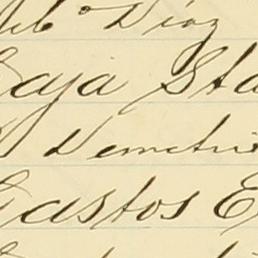 Díaz
Caja Sta
Demetri
Gastos E